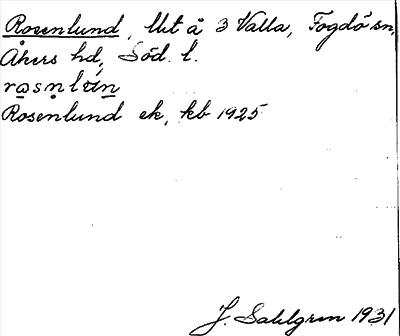 Rosenlund, lht å 3 Valla, Fogdö sn,
Åkers hd, Söd. l.
Rosenlund ek, kb 1925
J. Sahlgren 1931